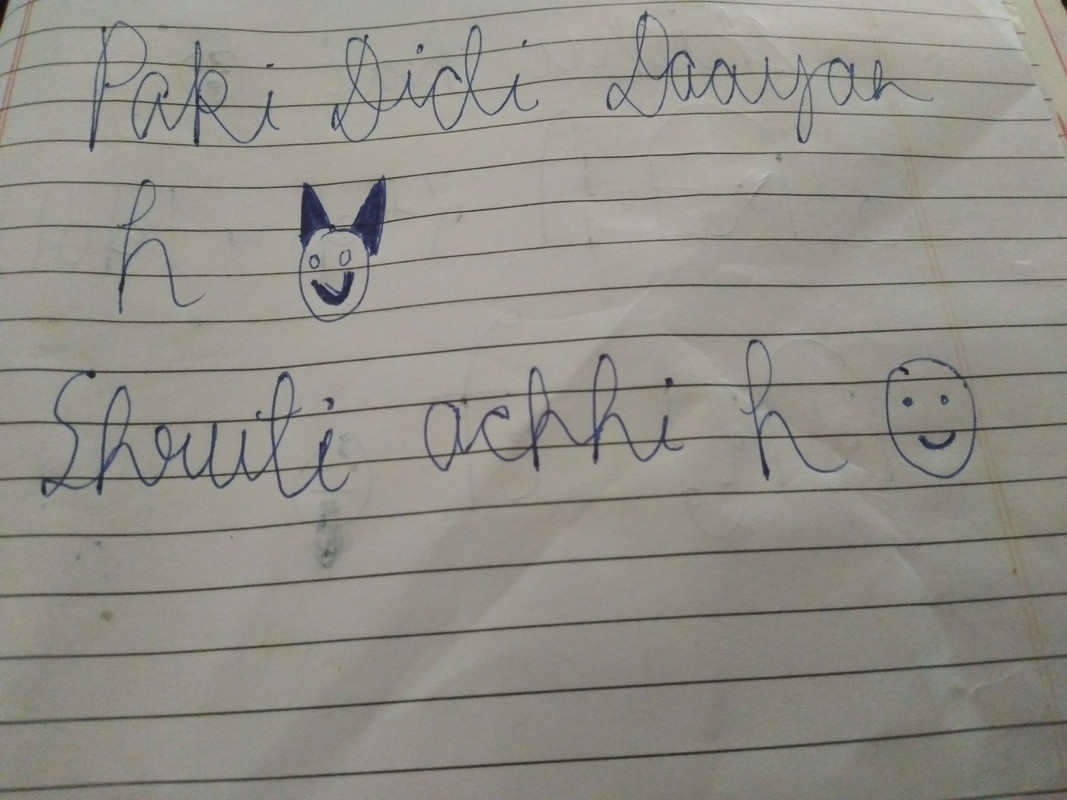 Paki Didi Daayan
h
Shruti achhi h